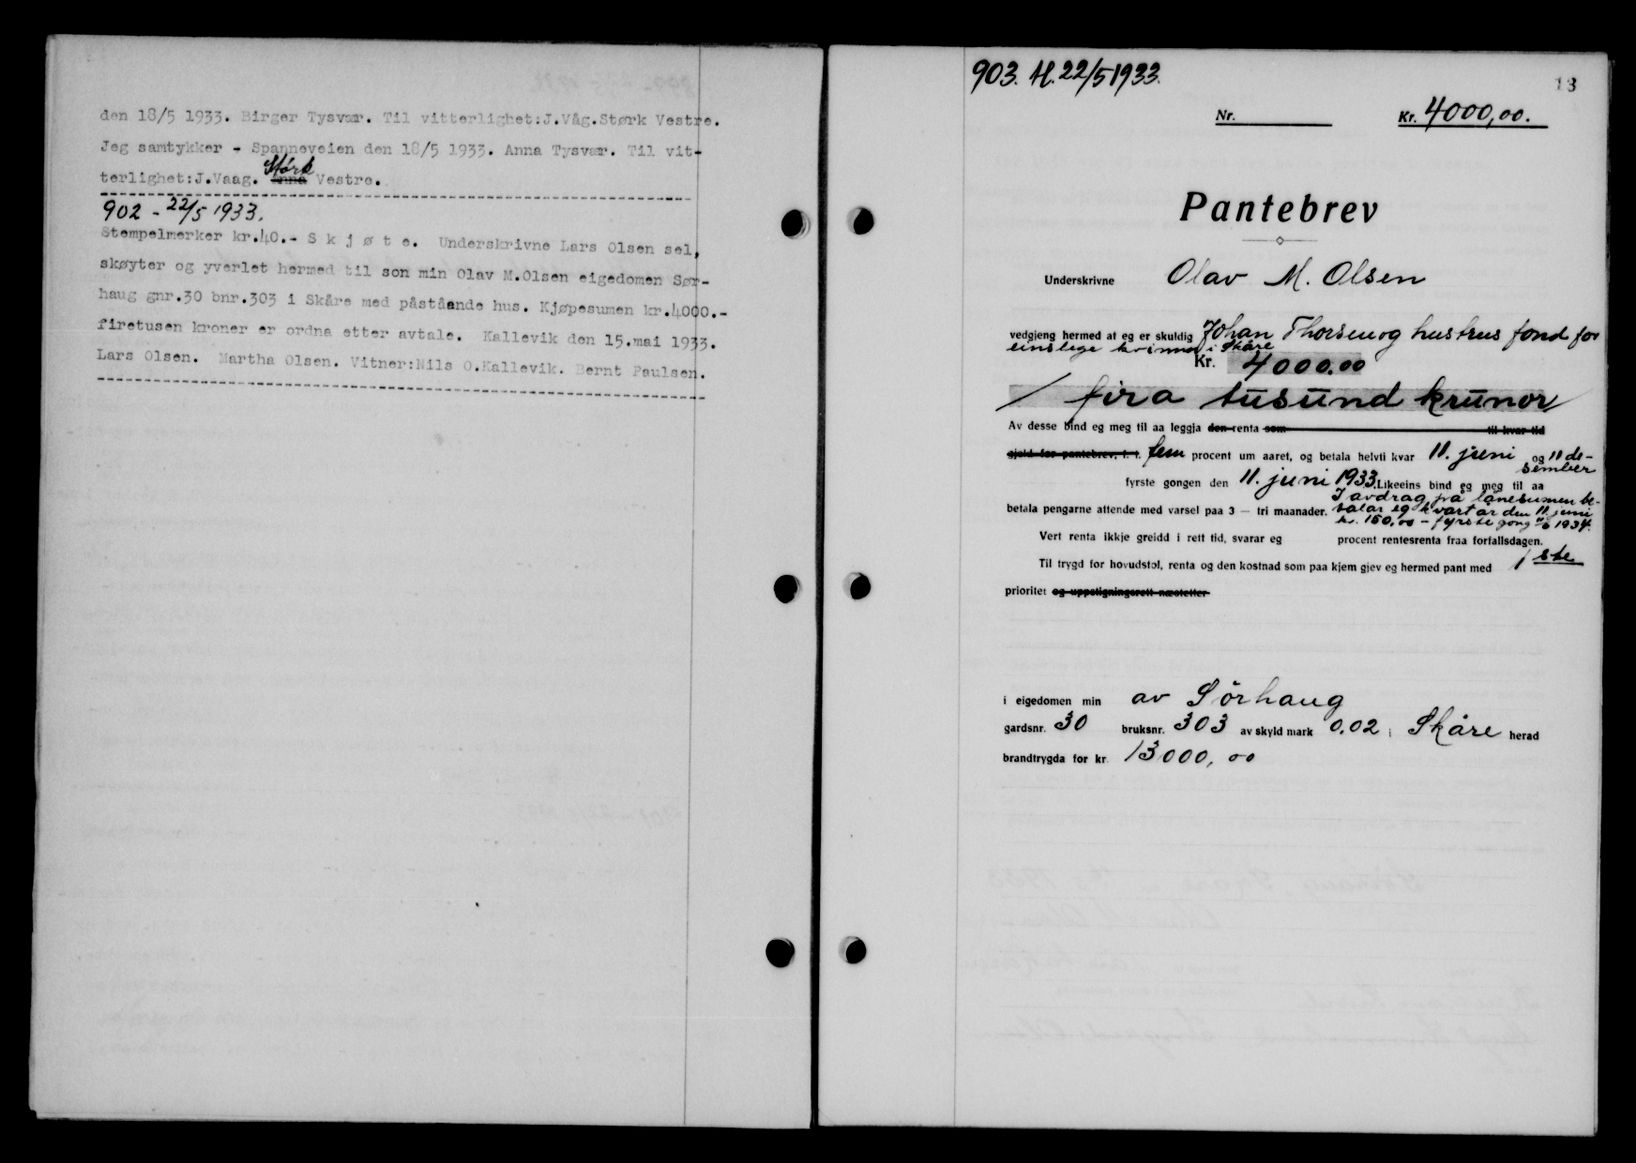 den 18/5 1933. Birger Tysvær. Til vitterlighet:J.Våg.Størk Vestre.
Jeg samtykker - Spanneveien den 18/5 1933. Anna Tysvær. Til vit-
terlighet:J.Vaag. Størk Anna Vestre.
902 - 22/5 1933.
Stempelmerker kr.40.- S k j ø t e. Underskrivne Lars Olsen sel,
skøyter og yverlet hermed til son min Olav M.Olsen eigedomen Sør-
haug gnr.30 bnr.303 i Skåre med påståande hus. Kjøpesumen kr.4000.-
firetusen kroner er ordna etter avtale. Kallevik den 15.mai 1933.
Lars Olsen. Martha Olsen. Vitner:Nils O.Kallevik. Bernt Paulsen.
903. H. 22/5 1933.
13
Nr.
Kr. 4000,00.
Pantebrev
Underskrivne Olav M. Olsen
vedgjeng hermed at eg er skuldig Johan Thorsen og hustrus fond for
einslege kvinner i Skåre
Kr. 4000.00
/ fira tusund krunor /
Av desse bind eg meg til aa leggja den renta som til kvar tid
gjeld for pantebrev, f. t. fem procent um aaret, og betala helvti kvar 11. juni og 11 de-
sember
fyrste gongen den 11. juni 1933. Likeeins bind eg meg til aa
I avdrag på lånesumen be-
betala pengarne attende med varsel paa 3 — tri maanader. talar eg kvart år den 11. juni
kr. 150,00 - fyrste gong 11/6 1934.
Vert renta ikkje greidd i rett tid, svarar eg procent rentesrenta fraa forfallsdagen.
Til trygd for hovudstol, renta og den kostnad som paa kjem gjev eg hermed pant med 1ste
prioritet og uppstigningsrett næstetter
i eigedomen min av Sörhaug
gardsnr. 30 bruksnr. 303 av skyld mark 0.02 i Skåre herad
brandtrygda for kr. 13000,00